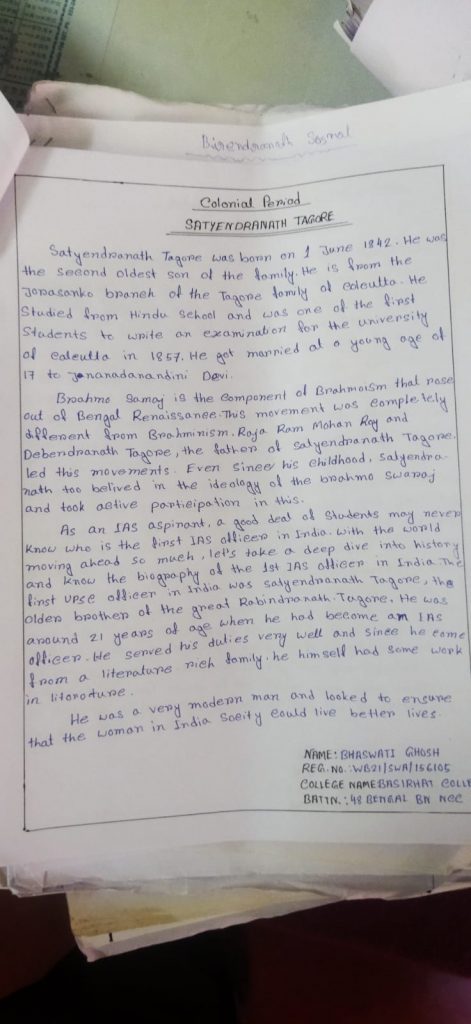 Birendranath Sasmal
Colonial Period
SATYENDRANATH TAGORE
Satyendranath Tagore was born on 1 June 1842. He was
the second oldest son of the family. He is from the
Jorasanko branch of the Tagore family of calcutta. He
Studied from Hindu School and was one of the first
Students to write an examination for the university
of calcutta in 1857. He got married at a young age of
17 to Jnanadanandini Devi.
Brahmo Samaj is the component of Brahmoism that rose
out of Bengal Renaissance. This movement was completely
different from Brahminism. Raja Ram Mohan Roy and
Debendranath Tagore, the father of Satyendranath Tagore.
led this movements. Even since his childhood, Satyendra-
nath too belived in the ideology of the brahmo Swaraj
and took active participation in this.
As an IAS aspirant, a good deal of Students may never
know who is the first IAS officer in India. With the world
moving ahead so much, let's take a deep dive into history
and know the biography of the 1st IAS officer in India. The
first UPSC officer in India was Satyendranath Tagore, the
older brother of the great Rabindranath Tagore. He was
around 21 years of age when he had become am IAS
officer. He served his duties very well and since he come
from a literature rich family, he himself had some work
in litorature.
He was a very modern man and looked to ensure
that the woman in India Soeity could live better lives.
NAME: BHASWATI GHOSH
REG. NO.: WB21/SWA/156105
COLLEGE NAME BASIRHAT COLLE
BATTN.: 48 BENGAL BN NCC